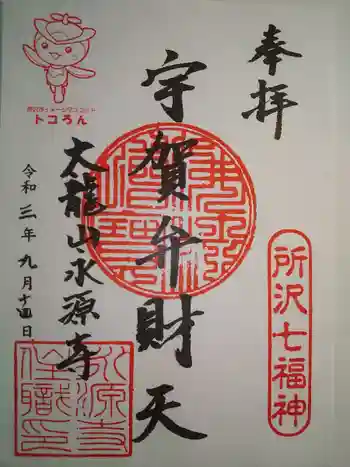 奉拝
所沢七福神
宇賀弁財天
大龍山永源寺
令和三年九月十四日
トコろん
永源寺
住職印